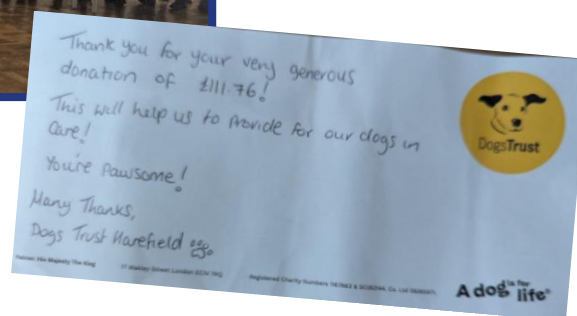 Thank you for your very generous
donation of £111.76!
This will help us to provide for our dogs in
care!
You're Pawsome!
Many Thanks,
Dogs Trust Harefield
DogsTrust
Patron: His Majesty The King
17 Wakley Street London EC1V 7RQ
Registered Charity Numbers
A dog is for life®